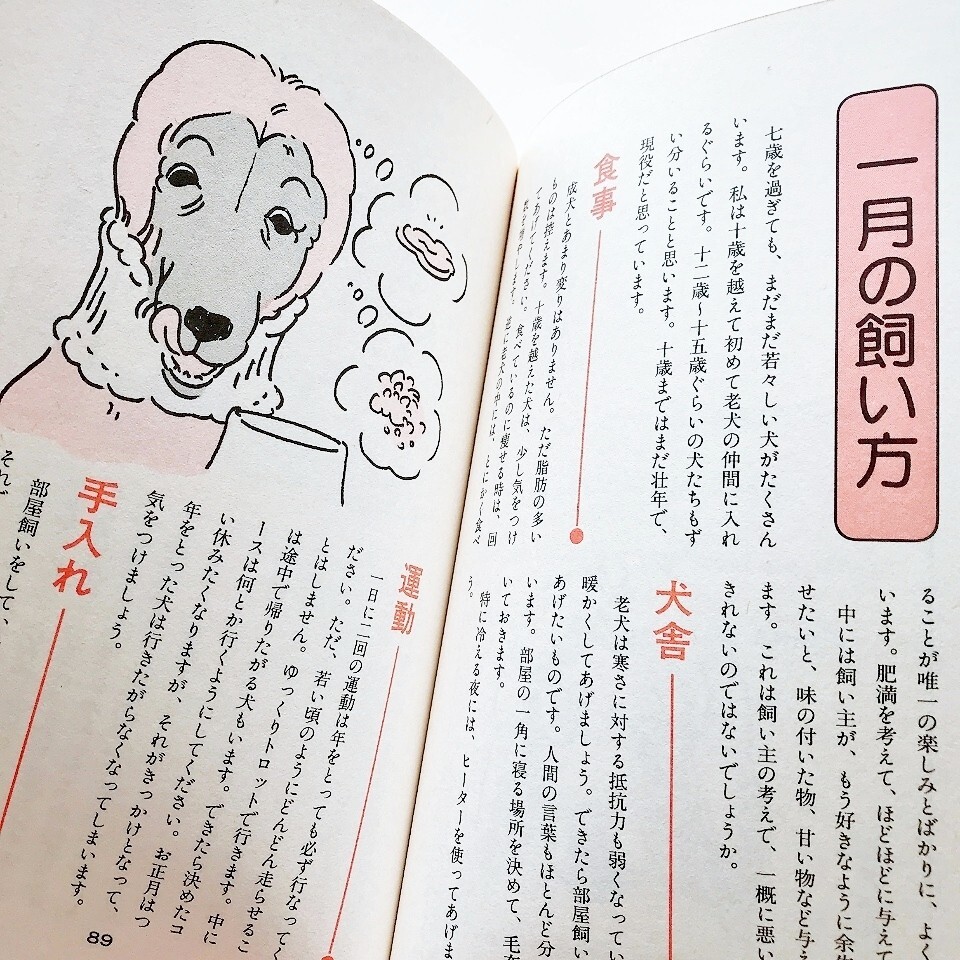 一月の飼い方
七歳を過ぎても、まだまだ若々しい犬がたくさん
います。私は十歳を越えて初めて老犬の仲間に入れ
るぐらいです。十二歳〜十五歳ぐらいの犬たちもず
い分いることと思います。十歳まではまだ壮年で、
現役だと思っています。
食事
成犬とあまり変りはありません。ただ脂肪の多い
ものは控えます。十歳を越えた犬は、少し気をつけ
てあげてください。食べているのに痩せる時は、回
数を増やします。逆に老犬の中には、とにかく食べ
ることが唯一の楽しみとばかりに、よく
います。肥満を考えて、ほどほどに与えて
中には飼い主が、もう好きなように余
せたいと、味の付いた物、甘い物など与え
ます。これは飼い主の考えで、一概に悪い
きれないのではないでしょうか。
犬舎
老犬は寒さに対する抵抗力も弱くなってい
暖かくしてあげましょう。できたら部屋飼い
あげたいものです。人間の言葉もほとんど分
います。部屋の一角に寝る場所を決めて、毛
いておきます。
特に冷える夜には、ヒーターを使ってあげま
う。
運動
一日に二回の運動は年をとっても必ず行なってく
ださい。ただ、若い頃のようにどんどん走らせるこ
とはしません。ゆっくりトロットで行きます。中に
は途中で帰りたがる犬もいます。できたら決めたコ
ースは何とか行くようにしてください。お正月はつ
い休みたくなりますが、それがきっかけとなって、
年をとった犬は行きたがらなくなってしまいます。
気をつけましょう。
手入れ
部屋飼いをして、
それぞ
89